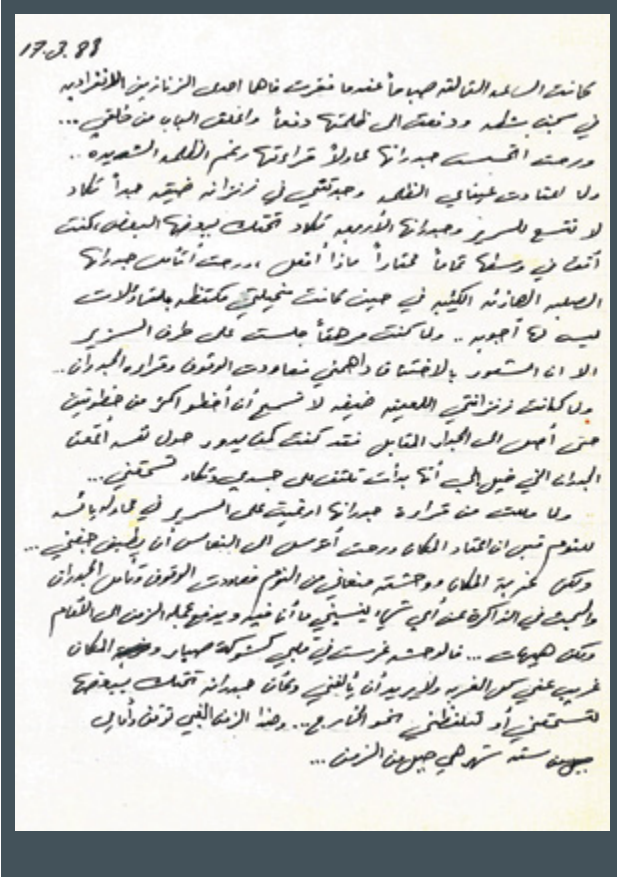 17.3.88
كانت الساعه الثالثه صباحاً عندما فغرت فاها احدى الزنازين الانفراديه
في سجن ودفعت الى ظلمتها دفعاً واغلق الباب من خلفي ...
ورحت اتحسس جدرانها محاولاً قراءتها رغم الظلمه الشديده ..
ولما اعتادت عيناي الظلمه وجدتني في زنزانه ضيقه جداً تكاد
لا تتسع للسرير وجدرانها الأربعه تكاد تحتك ببعضها البعض، كنت
أقف في وسطها تماماً محتاراً ماذا أفعل، ورحت أتأمل جدرانها
الصلبه الهازئه الكئيبه في حين كانت مخيلتي مكتظه بتساؤلات
ليس لها أجوبه .. ولما كنت مرهقاً جلست على طرف السرير
الا ان الشعور بالاختناق داهمني فعاودت الوقوف وقراءه الجدران ..
ولما كانت زنزانتي اللعينه ضيقه لا تسمح أن أخطو اكثر من خطوتين
حتى أصل الى الجدار المقابل فقد كنت كمن يدور حول نفسه أتمعن
الجدران التي خيل إلي أنها بدأت تلتف على جسدي وتكاد تسحقني ...
ولما مللت من قراءة جدرانها ارتميت على السرير في محاوله يائسه
للنوم قبل ان اعتاد المكان ورحت أتوسل الى النعاس أن يطبق جفني ...
ولكن غربة المكان ووحشته منعاني من النوم فعاودت الوقوف وتأمل الجدران
والبحث في الذاكرة عن أي شيء ينسيني ما أنا فيه ويدفع عجله الزمن الى الأمام
ولكن هيهات ... فالوحشه غرست في قلبي كشوكة صبار المكان
غريب عني كل الغربه ولا يريد أن يألفني وكأن جدرانه تحتك ببعضها
لتسحقني أو لتلفظني نحو الخارج ... وهذا الزمن
سته شهر هي من الزمن ...